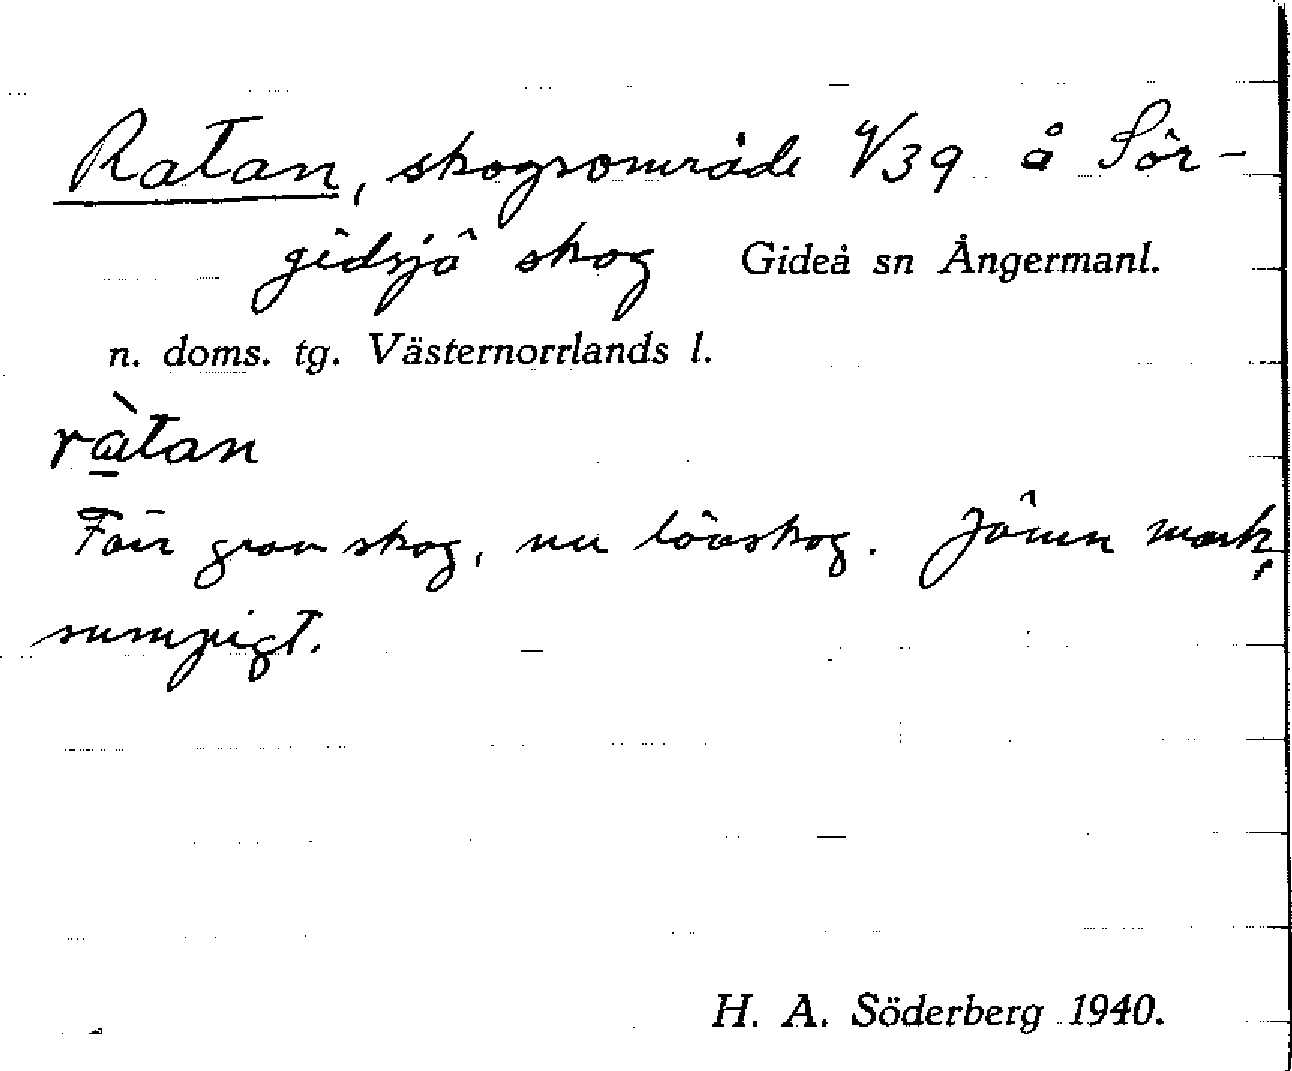 Ratan, skogsområde V39 å Sör-
gidsjö skog Gideå sn Ångermanl.
n. doms. tg. Västernorrlands l.
ràtan
Förr granskog, nu lövskog. Jämn mark,
sumpigt.
H. A. Söderberg 1940.